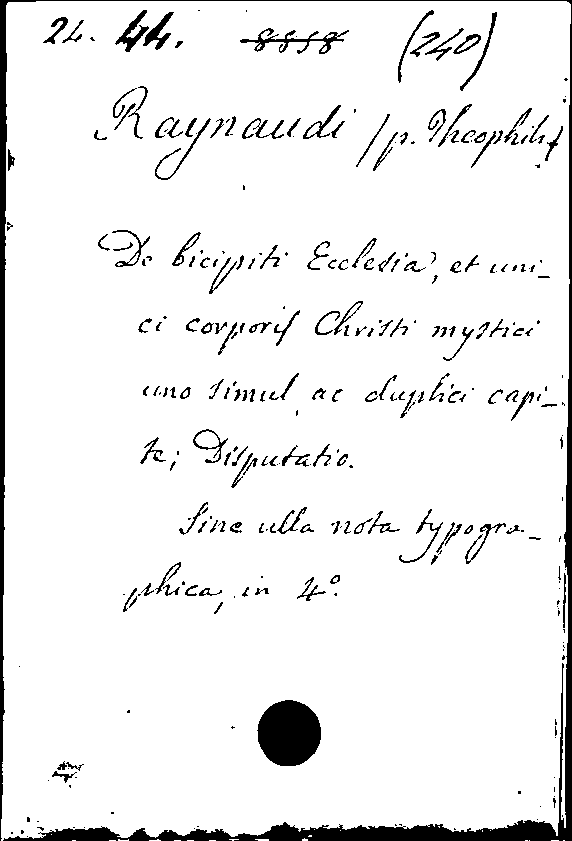 24. 44. 8858 (240)
Raynaudi /p. Theophili/
De bicipiti Ecclesia, et uni-
ci corporis Christi mystici
uno simul ac duplici capi-
te; Disputatio.
Sine ulla nota typogra-
phica, in 4°.